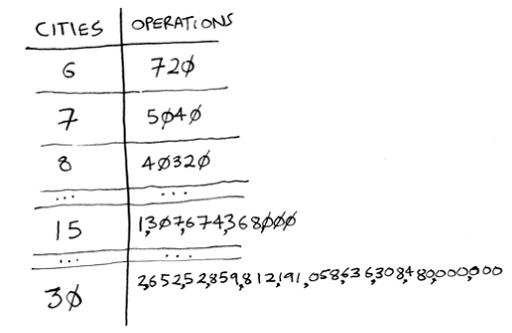 CITIES OPERATIONS
6 720
7 5040
8 40320
... ...
15 1,307,674,368000
... ...
30 265,252,859,812,191,058,636,308,480,000,000